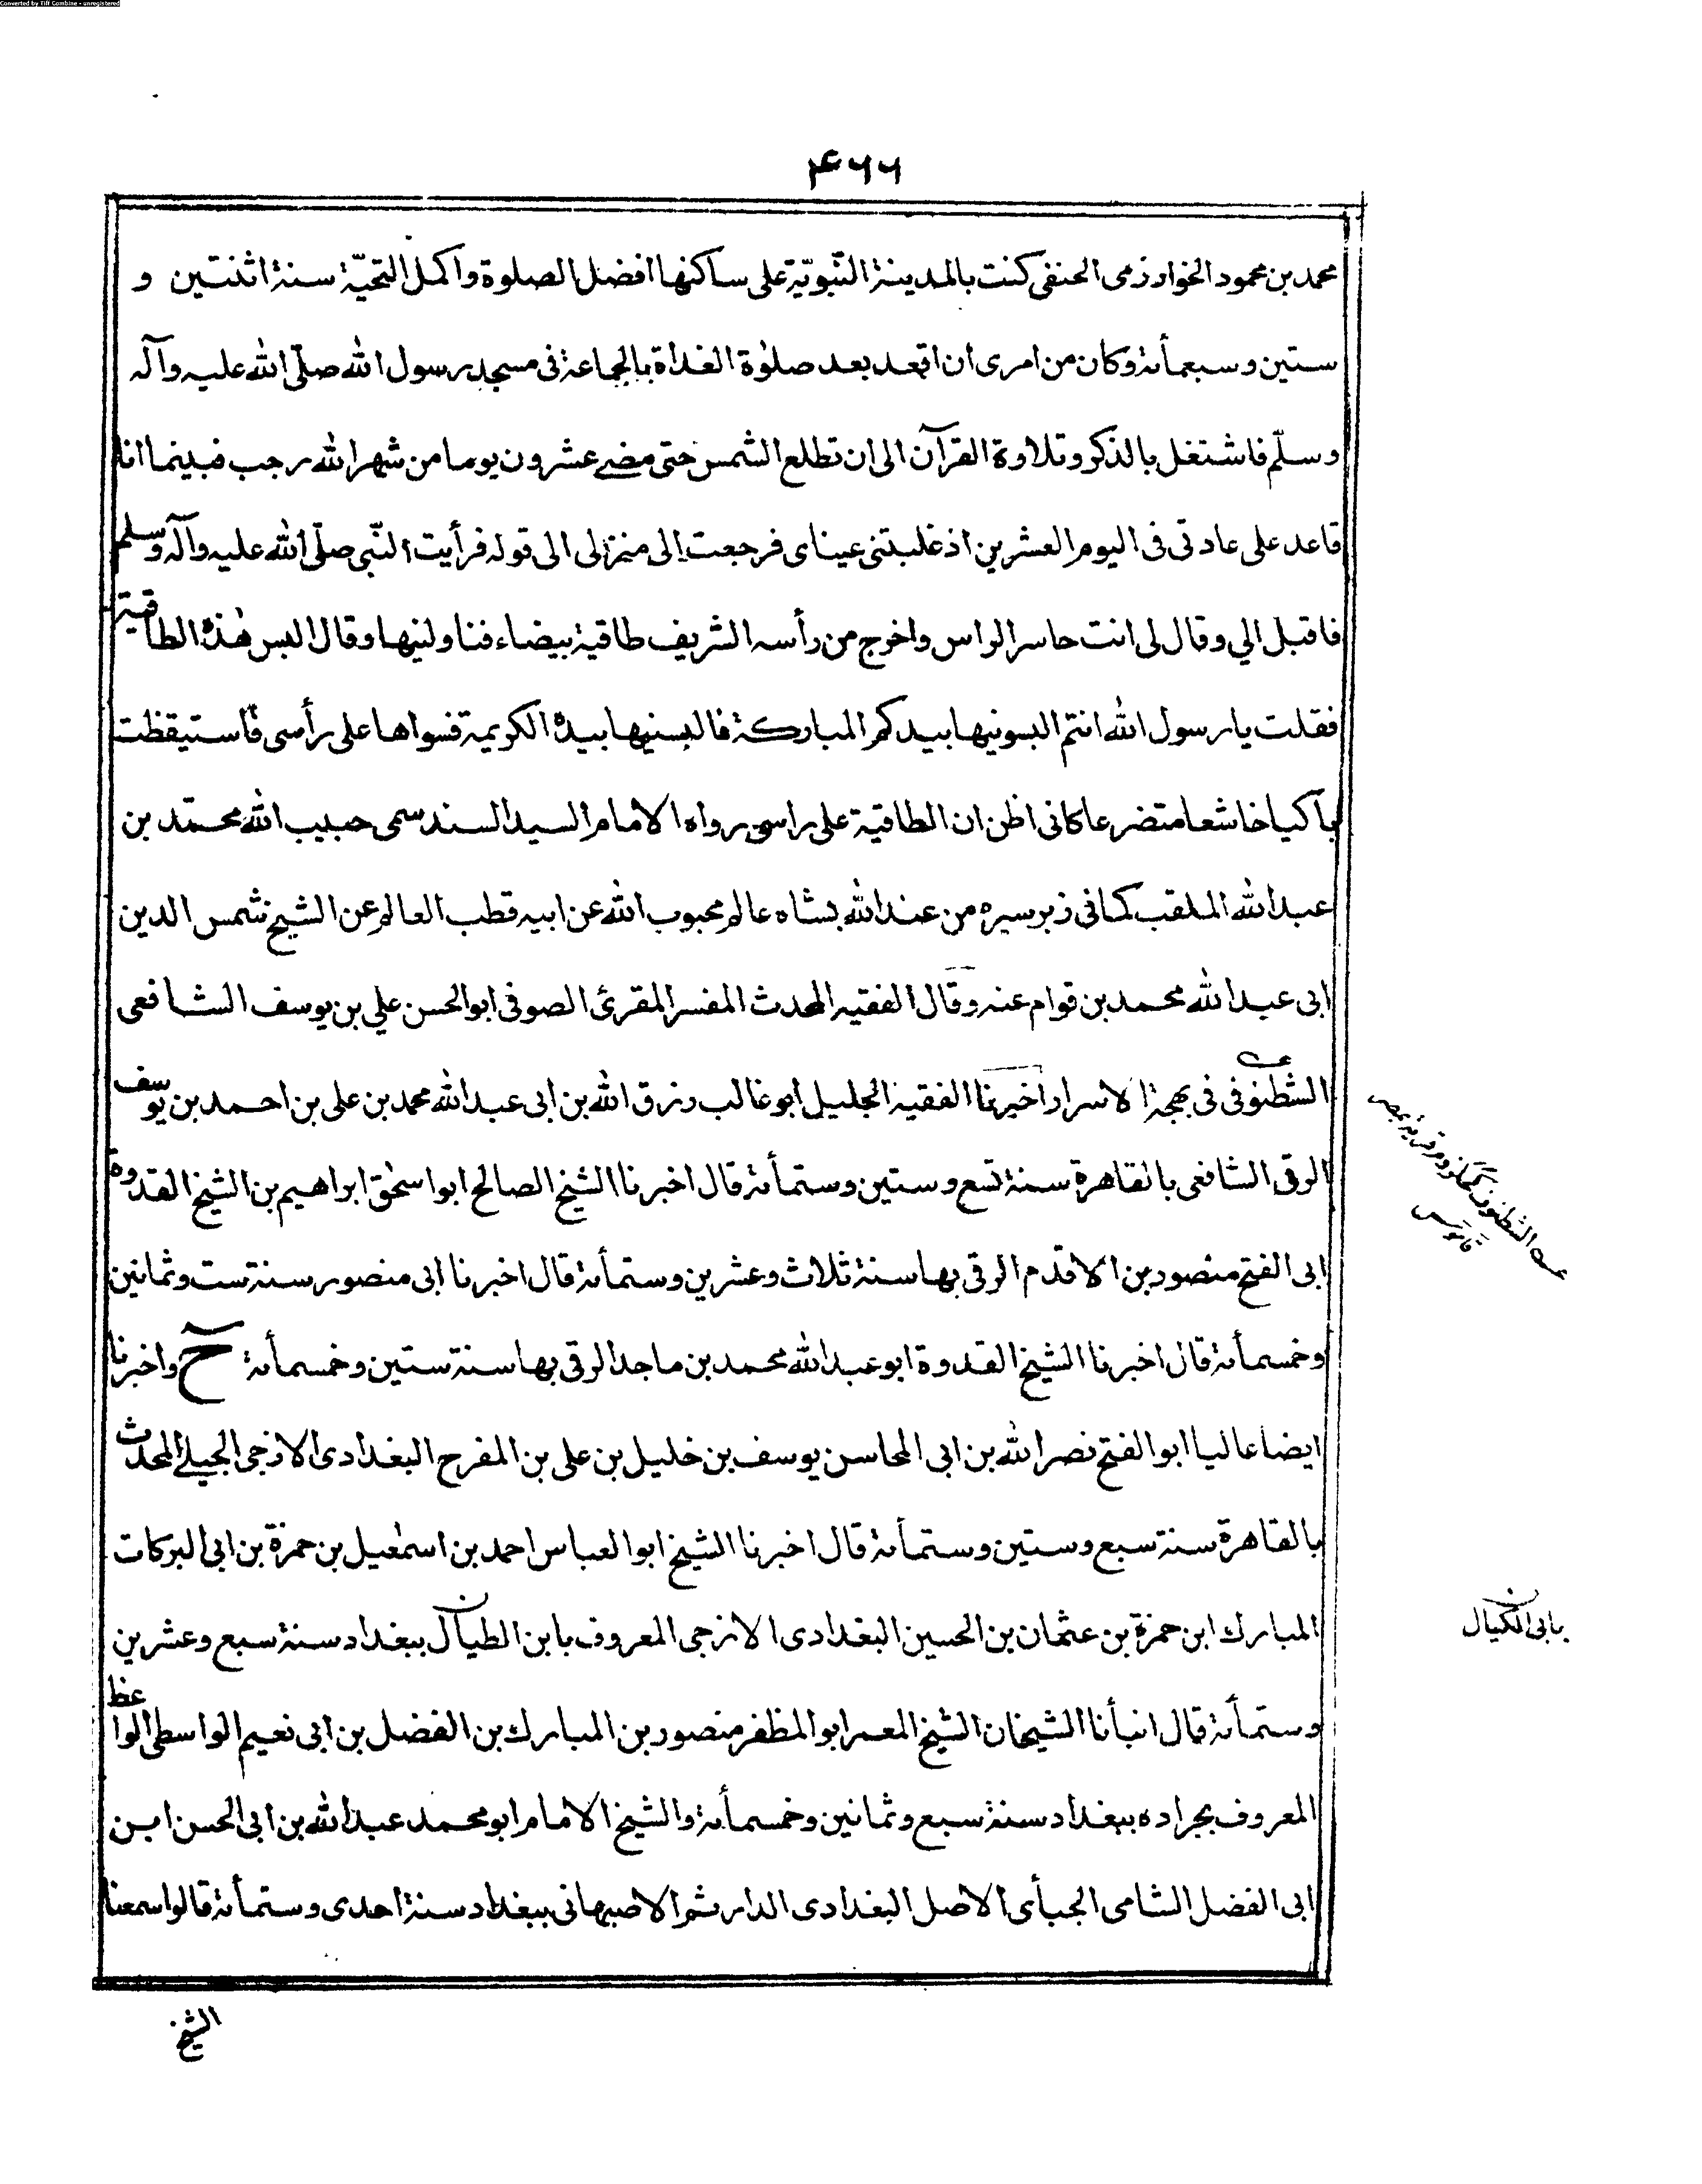 Converted by Tiff Combine - unregistered
۴۶۶
محمد بن محمود الخوارزمى الحنفى كنت بالمدينة النّبويّة على ساكنها افضل الصلوة واكمل التحيّة سنة اثنتين و
ستين وسبعمأئة وكان من امرى ان اقعد بعد صلوٰة الغداة بالجماعة فى مسجد رسول الله صلّى الله عليه وآله
وسلّم فاشتغل بالذكر وتلاوة القرآن الى ان تطلع الشمس حتى مضى عشرون يوما من شهر الله رجب فبينما انا
قاعد على عادتى فى اليوم العشرين اذ غلبتنى عيناى فرجعت الى منزلى الى قوله فرأيت النّبى صلّى الله عليه وآله وسلم
فاقبل الي وقال لى انت حاسر الراس واخرج من رأسه الشريف طاقية بيضاء فناولنيها وقال البس هٰذه الطاقية
فقلت يا رسول الله انتم البسونيها بيدكم المباركة فالبسنيها بيده الكريمة فسواها على رأسى فاستيقظت
باكيا خاشعا متضرعا كانى اظن ان الطاقية على راسى رواه الامام السيد السند سمى حبيب الله محمّد بن
عبد الله الملقب كمافى زبر سيره من عند الله بشاه عالم محبوب الله عن ابيه قطب العالم عن الشيخ شمس الدين
ابى عبد الله محمد بن قوام عنه وقال الفقيه المحدث المفسر المقرئ الصوفى ابو الحسن علي بن يوسف الشافعى
الشطنوفى فى بهجة الاسرار اخبرنا الفقيه الجليل ابو غالب رزق الله بن ابى عبد الله محمد بن على بن احمد بن يوسف
الرقى الشافعى بالقاهرة سنة تسع وستين وستمأئة قال اخبرنا الشيخ الصالح ابو اسحٰق ابراهيم بن الشيخ القدوة
ابى الفتح منصور بن الاقدم الرقى بها سنة ثلاث وعشرين وستمأئة قال اخبرنا ابى منصور سنة ست وثمانين
وخمسمأئة قال اخبرنا الشيخ القدوة ابو عبد الله محمد بن ماجد الرقى بها سنة ستين وخمسمأئة ح واخبرنا
ايضا عاليا ابو الفتح نصر الله بن ابى المحاسن يوسف بن خليل بن على بن المفرح البغدادى الازجى الجيلى المحدث
بالقاهرة سنة سبع وستين وستمأئة قال اخبرنا الشيخ ابو العباس احمد بن اسمٰعيل بن حمزة بن ابى البركات
المبارك ابن حمزة بن عثمان بن الحسين البغدادى الازجى المعروف بابن الطبال ببغداد سنة سبع وعشرين
وستمأئة قال انبأنا الشيخان الشيخ المعمر ابو المظفر منصور بن المبارك بن الفضل بن ابى نعيم الواسطى الواعظ
المعروف بجراده ببغداد سنة سبع وثمانين وخمسمأئة والشيخ الامام ابو محمد عبد الله بن ابى الحسن ابن
ابى الفضل الشامى الجبأى الاصل البغدادى الدار ثم الاصبهانى ببغداد سنة احدى وستمأئة قالوا سمعنا
الشيخ
الشطنوف قرية بمصر
قاموس
بابى الكيال